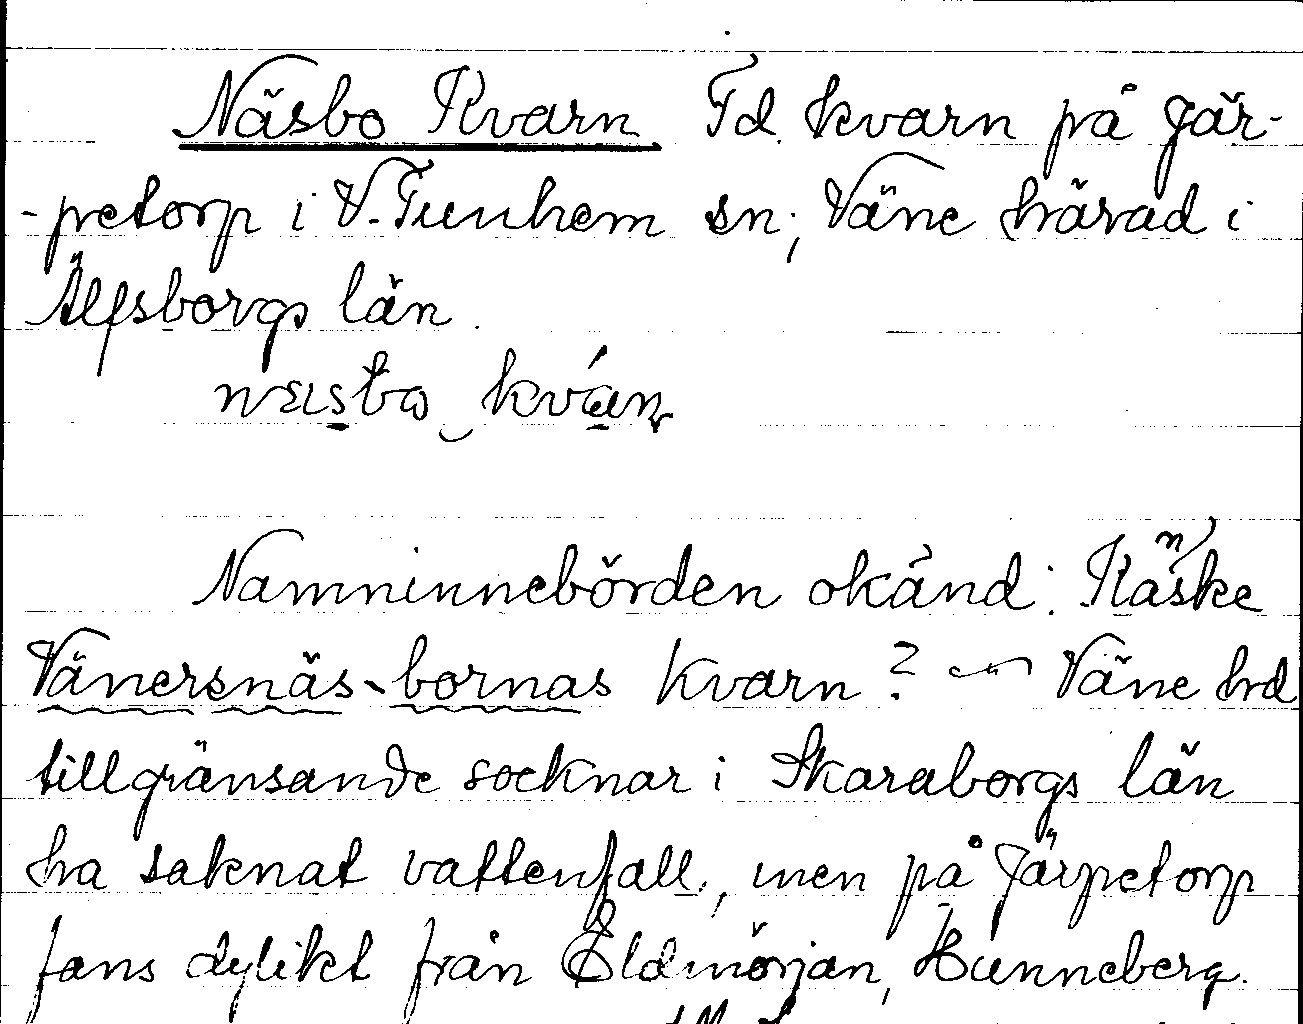 Näsbo Kvarn Fd. kvarn på Jär-
-petorp i V. Tunhem sn; Väne härad i
Älfsborgs län.
Namninnebörden okänd: Kanske
Vänersnäs-bornas Kvarn? Väne hrd
tillgränsande socknar i Skaraborgs län
ha saknat vattenfall, men på Järpetorp
fans dylikt från Eldmörjan, Hunneberg.